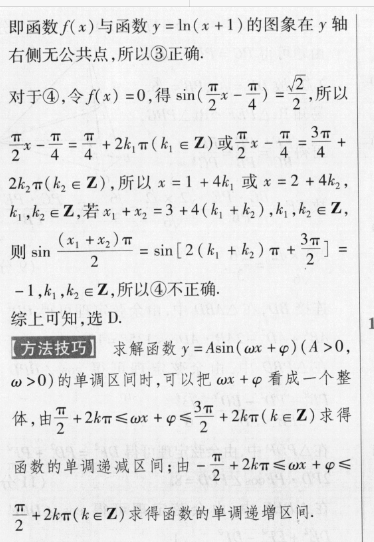 即函数f(x)与函数 y=ln(x+1)的图象在 y 轴
右侧无公共点,所以③正确.
对于④,令f(x)=0,得 sin(π/2 x - π/4)=√2/2,所以
π/2 x - π/4 = π/4 + 2k₁π(k₁∈Z)或π/2 x - π/4 = 3π/4 +
2k₂π(k₂∈Z),所以 x=1+4k₁ 或 x=2+4k₂,
k₁,k₂∈Z,若 x₁+x₂=3+4(k₁+k₂),k₁,k₂∈Z,
则 sin (x₁+x₂)π/2 = sin[2(k₁+k₂)π+3π/2] =
-1,k₁,k₂∈Z,所以④不正确.
综上可知,选 D.
【方法技巧】 求解函数 y=Asin(ωx+φ)(A>0,
ω>0)的单调区间时,可以把 ωx+φ 看成一个整
体,由π/2+2kπ≤ωx+φ≤3π/2+2kπ(k∈Z)求得
函数的单调递减区间;由 -π/2+2kπ≤ωx+φ≤
π/2+2kπ(k∈Z)求得函数的单调递增区间.
1